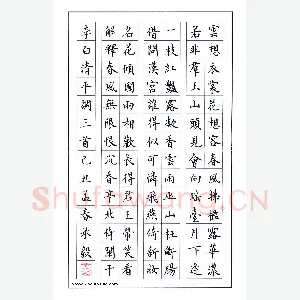 雲想衣裳花想容春風拂檻露華濃
若非群玉山頭見會向瑤臺月下逢
一枝紅豔露凝香雲雨巫山枉斷腸
借問漢宮誰得似可憐飛燕倚新妝
名花傾國兩相歡長得君王帶笑看
解釋春風無限恨沉香亭北倚闌干
李白清平調三首己丑孟春米毅
Shufawang.CN